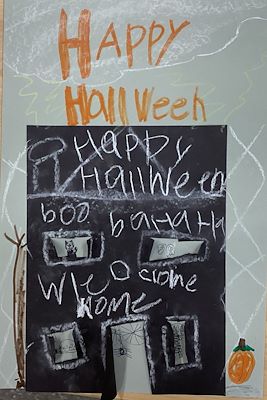 HAPPY
HallWeeh
Happy
HallWeen
boo baHaHa
Wleocrome
Home